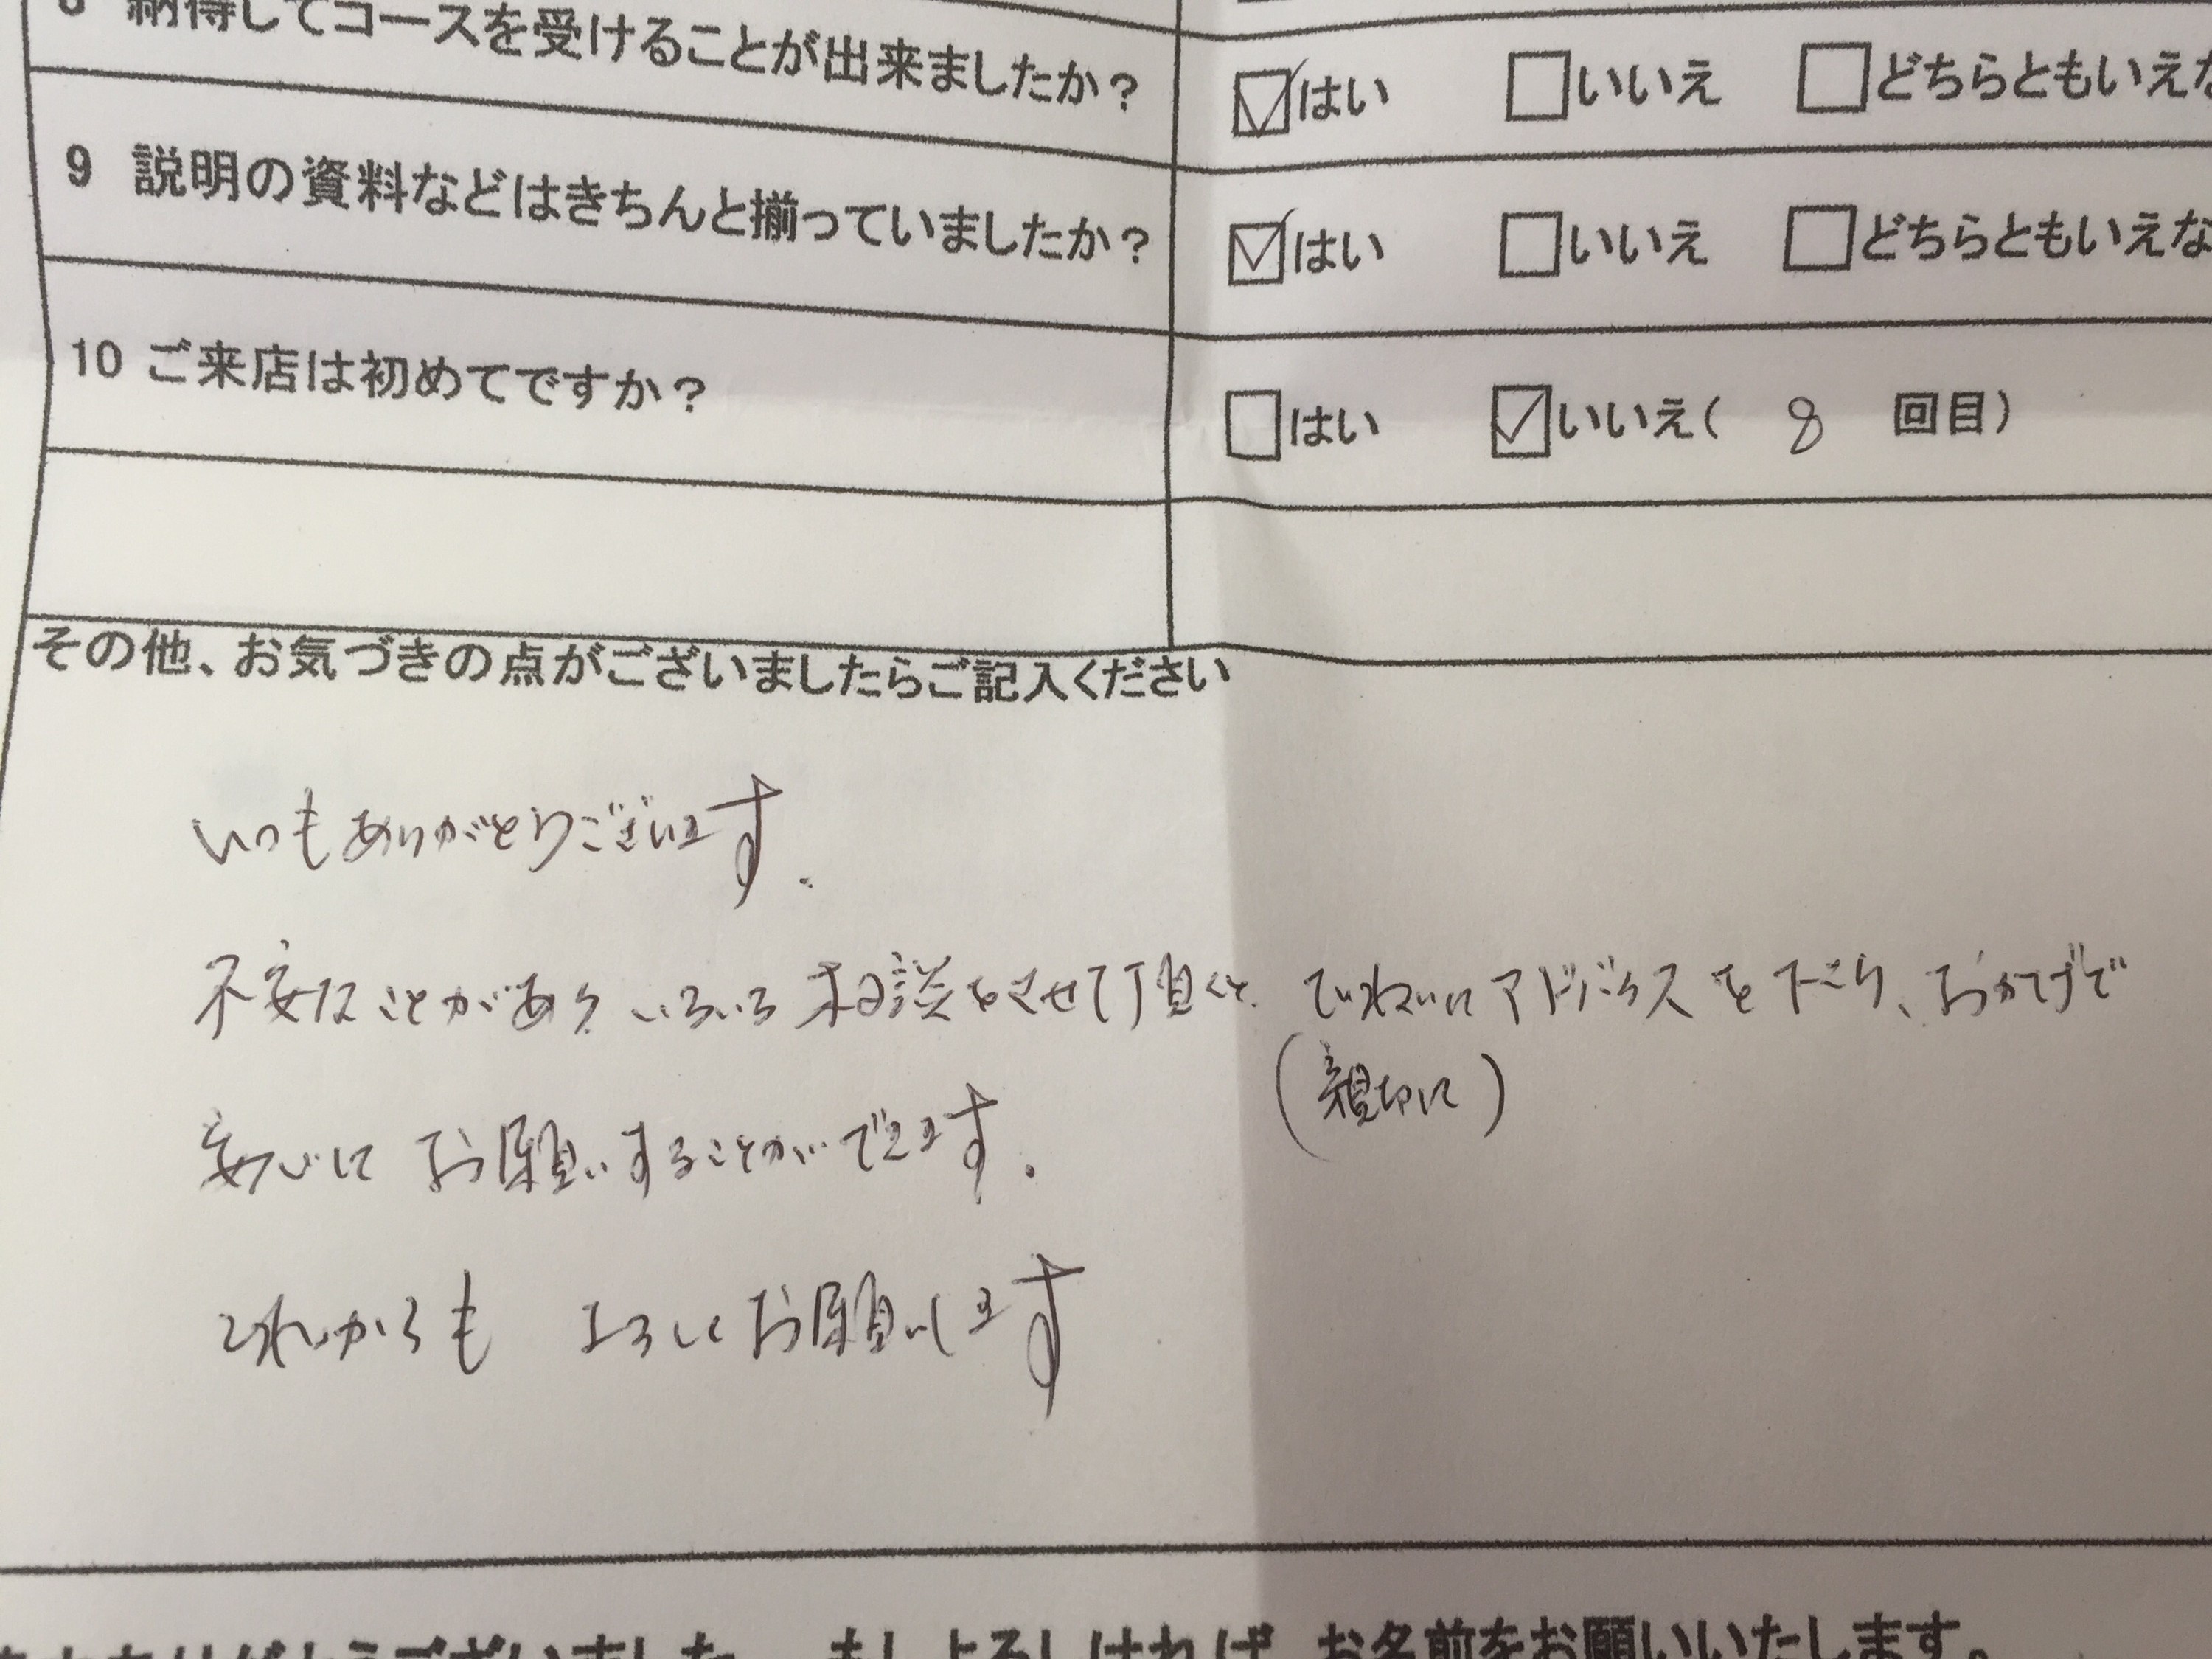 納得してコースを受けることが出来ましたか？ ☑はい □いいえ □どちらともいえな
9 説明の資料などはきちんと揃っていましたか？ ☑はい □いいえ □どちらともいえな
10 ご来店は初めてですか？ □はい ☑いいえ( 8 回目)
その他、お気づきの点がございましたらご記入ください
いつもありがとうございます.
不安なことがあり いろいろ 相談をさせて頂くと、ていねいに アドバイスを下さり、おかげで
(親切に)
安心に お願いすることができます.
これからも よろしくお願いします
ありがとうございました。 もしよろしければ、お名前をお願いいたします。